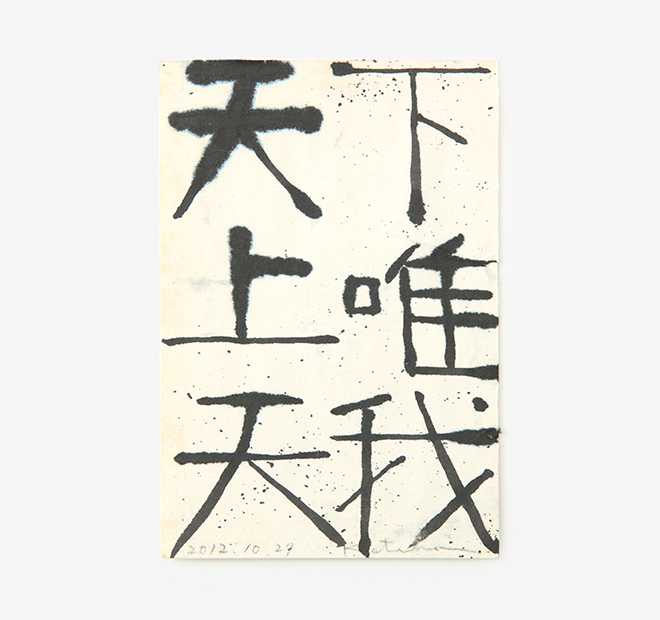 天上天
下唯我
2012.10.29